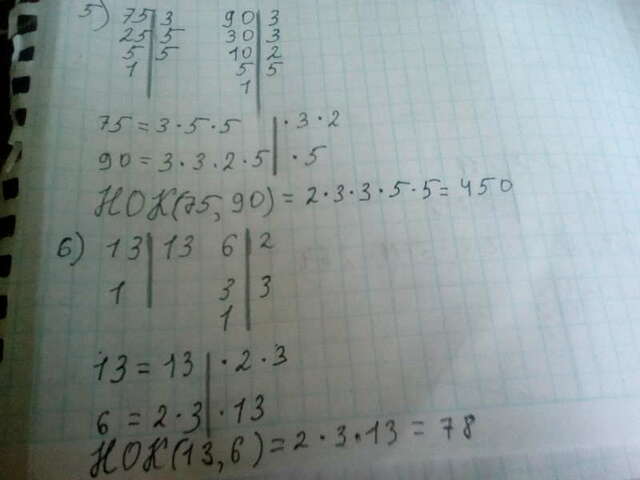 5) 75 | 3   90 | 3
25 | 5   30 | 3
5 | 5   10 | 2
1 |   5 | 5
1
75 = 3 · 5 · 5 | · 3 · 2
90 = 3 · 3 · 2 · 5 | · 5
НОК(75, 90) = 2 · 3 · 3 · 5 · 5 = 450
6) 13 | 13   6 | 2
1 |   3 | 3
1
13 = 13 | · 2 · 3
6 = 2 · 3 | · 13
НОК(13, 6) = 2 · 3 · 13 = 78